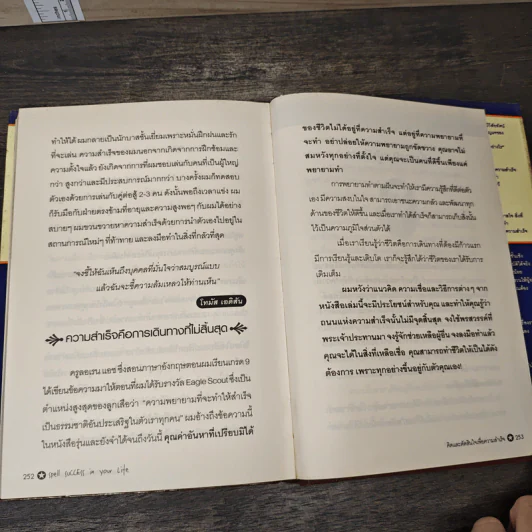 ทำให้ได้ ผมกลายเป็นนักบาสชั้นเยี่ยมเพราะหมั่นฝึกฝนและรัก
ที่จะเล่น ความสำเร็จของผมนอกจากเกิดจากการฝึกซ้อมและ
ความตั้งใจแล้ว ยังเกิดจากการที่ผมชอบเล่นกับคนที่เป็นผู้ใหญ่
กว่า สูงกว่าและมีประสบการณ์มากกว่า บางครั้งผมก็ทดสอบ
ตัวเองด้วยการเล่นกับคู่ต่อสู้ 2-3 คน ดังนั้นพอถึงเวลาแข่ง ผม
ก็รับมือกับฝ่ายตรงข้ามที่อายุและความสูงพอๆ กับผมได้อย่าง
สบายๆ ผมชวนขวายหาความสำเร็จด้วยการนำตัวเองไปอยู่ใน
สถานการณ์ใหม่ๆ ที่ท้าทาย และลงมือทำในสิ่งที่กลัวที่สุด
"จงชี้ให้ฉันเห็นถึงบุคคลที่มั่นใจว่าสมบูรณ์แบบ
แล้วฉันจะชี้ความล้มเหลวให้ท่านเห็น"
โทมัส เอดิสัน
ความสำเร็จคือการเดินทางที่ไม่สิ้นสุด
ครูลอเรน แอช ซึ่งสอนภาษาอังกฤษตอนผมเรียนเกรด 9
ได้เขียนข้อความมาให้ตอนที่ผมได้รับรางวัล Eagle Scout ซึ่งเป็น
ตำแหน่งสูงสุดของลูกเสือว่า "ความพยายามที่จะทำให้สำเร็จ
เป็นธรรมชาติอันประเสริฐในตัวเราทุกคน" ผมอ้างถึงข้อความนี้
ในหนังสือรุ่นและยังจำได้จนถึงวันนี้ คุณค่าอันหาที่เปรียบมิได้
252 spell success in your life
ของชีวิตไม่ได้อยู่ที่ความสำเร็จ แต่อยู่ที่ความพยายามที่
จะทำ อย่าปล่อยให้ความพยายามถูกขัดขวาง คุณอาจไม่
สมหวังทุกอย่างที่ตั้งใจ แต่คุณจะเป็นคนที่ดีขึ้นเพียงแค่
พยายามทำ
การพยายามทำตามฝันจะทำให้เรามีความรู้สึกที่ดีต่อตัว
เอง มีความสงบในใจ สามารถเอาชนะความกลัว และพัฒนาทุก
ด้านของชีวิตให้ดีขึ้น และเมื่อเราทำได้สำเร็จก็สามารถเก็บสิ่งนั้น
ไว้เป็นความภูมิใจส่วนตัวได้
เมื่อเราเรียนรู้ว่าชีวิตคือการเดินทางที่ต้องมีก้าวแรก
มีการเรียนรู้และเติบโต เราก็จะรู้สึกได้ว่าชีวิตของเราได้รับการ
เติมเต็ม
ผมหวังว่าแนวคิด ความเชื่อและวิธีการต่างๆ จาก
หนังสือเล่มนี้จะมีประโยชน์สำหรับคุณ และทำให้คุณรู้ว่า
ถนนแห่งความสำเร็จนั้นไม่มีจุดสิ้นสุด จงใช้พรสวรรค์ที่
พระเจ้าประทานมา จงรู้จักช่วยเหลือผู้อื่น จงลงมือทำแล้ว
คุณจะได้ในสิ่งที่เหลือเชื่อ คุณสามารถทำชีวิตให้เป็นได้ดั่ง
ต้องการ เพราะทุกอย่างขึ้นอยู่กับตัวคุณเอง!
คิดและตัดสินใจเพื่อความสำเร็จ 253